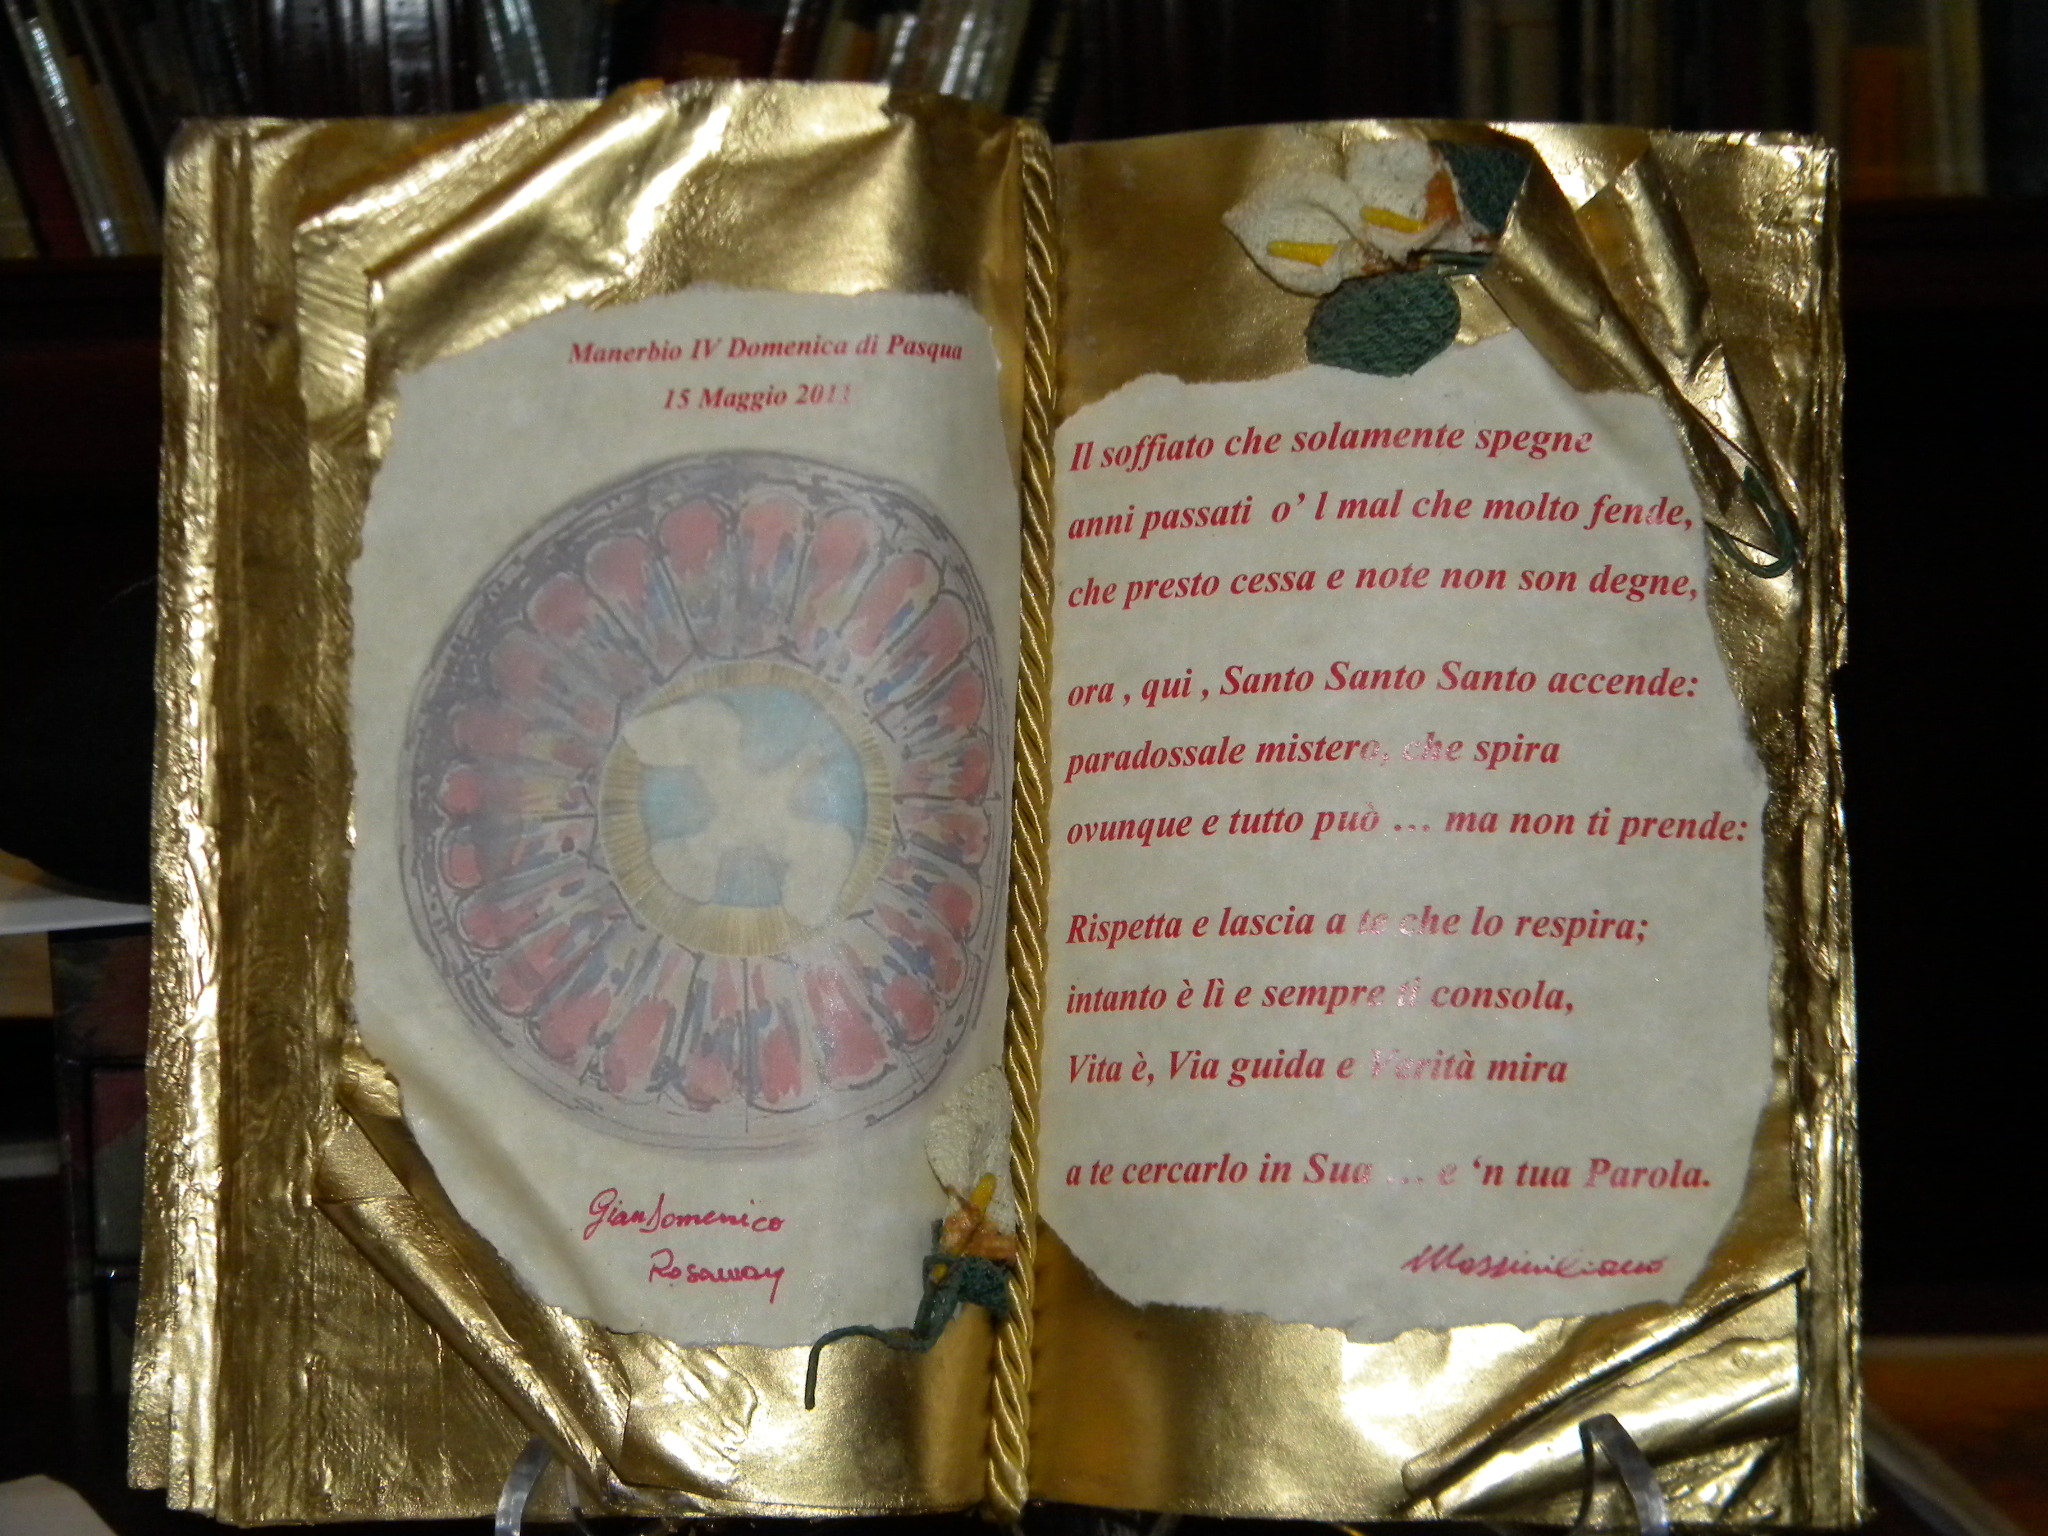 Manerbio IV Domenica di Pasqua
15 Maggio 2011
GianDomenico
Rosaway
Il soffiato che solamente spegne
anni passati o' l mal che molto fende,
che presto cessa e note non son degne,
ora , qui , Santo Santo Santo accende:
paradossale mistero, che spira
ovunque e tutto può … ma non ti prende:
Rispetta e lascia a te che lo respira;
intanto è lì e sempre ti consola,
Vita è, Via guida e Verità mira
a te cercarlo in Sua … e ‘n tua Parola.
Massimiliano